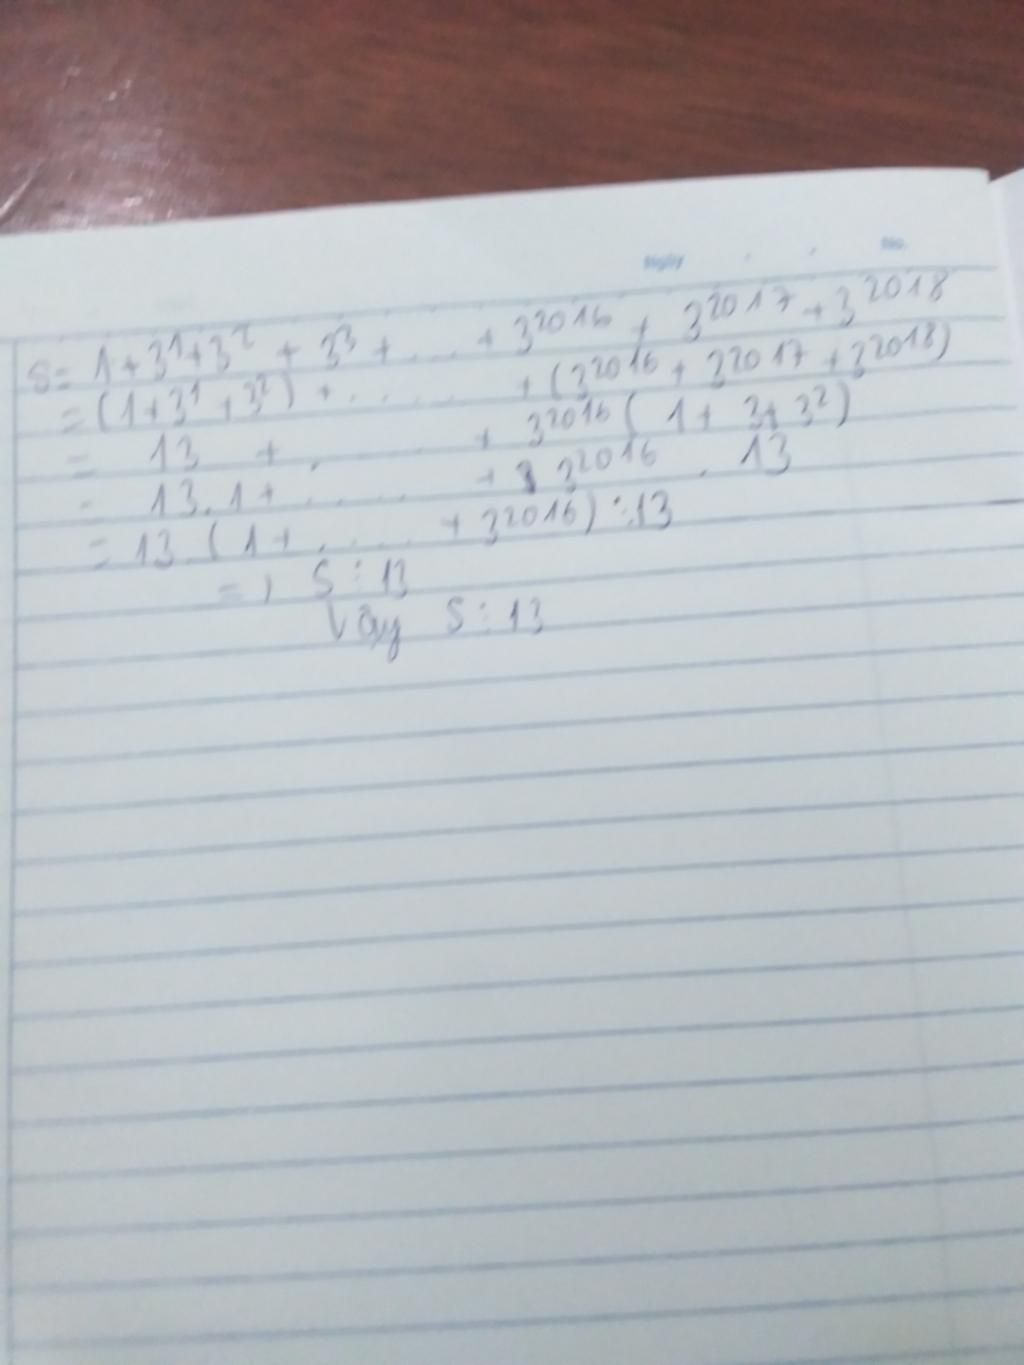 Ngày . . No.
S = 1 + 3¹ + 3² + 3³ + ... + 3²⁰¹⁶ + 3²⁰¹⁷ + 3²⁰¹⁸
= (1 + 3¹ + 3²) + ..... + (3²⁰¹⁶ + 3²⁰¹⁷ + 3²⁰¹⁸)
= 13 + ....... + 3²⁰¹⁶ (1 + 3 + 3²)
= 13.1 + ..... + 3²⁰¹⁶ . 13
= 13 (1 + ..... + 3²⁰¹⁶) ⋮ 13
=) S ⋮ 13
Vậy S ⋮ 13